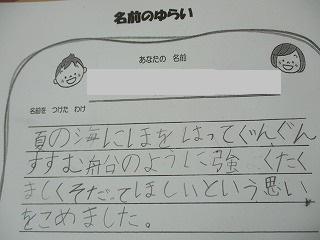 名前のゆらい
あなたの 名前
名前を つけた わけ
夏の海にほをはってぐんぐん
すすむ舟台のように強 くたく
ましくそだってほしいという思い
をこめました。